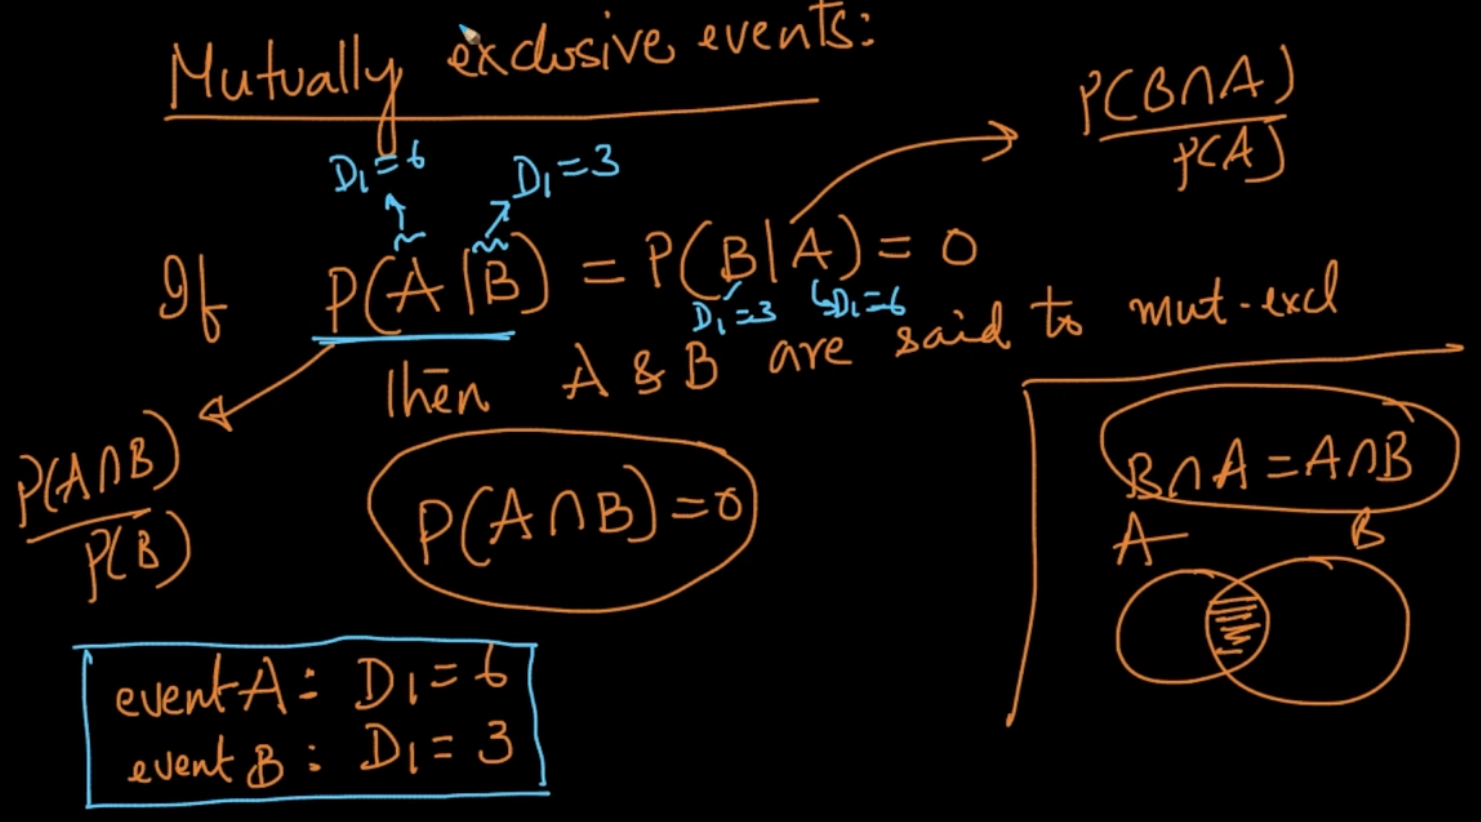 Mutually exclusive events:
P(B∩A)
P(A)
D1=6 D1=3
If P(A|B) = P(B|A) = 0
D1=3 D1=6
then A & B are said to mut-excl
P(A∩B)
P(B)
P(A∩B)=0
B∩A=A∩B
A B
event A: D1=6
event B: D1=3